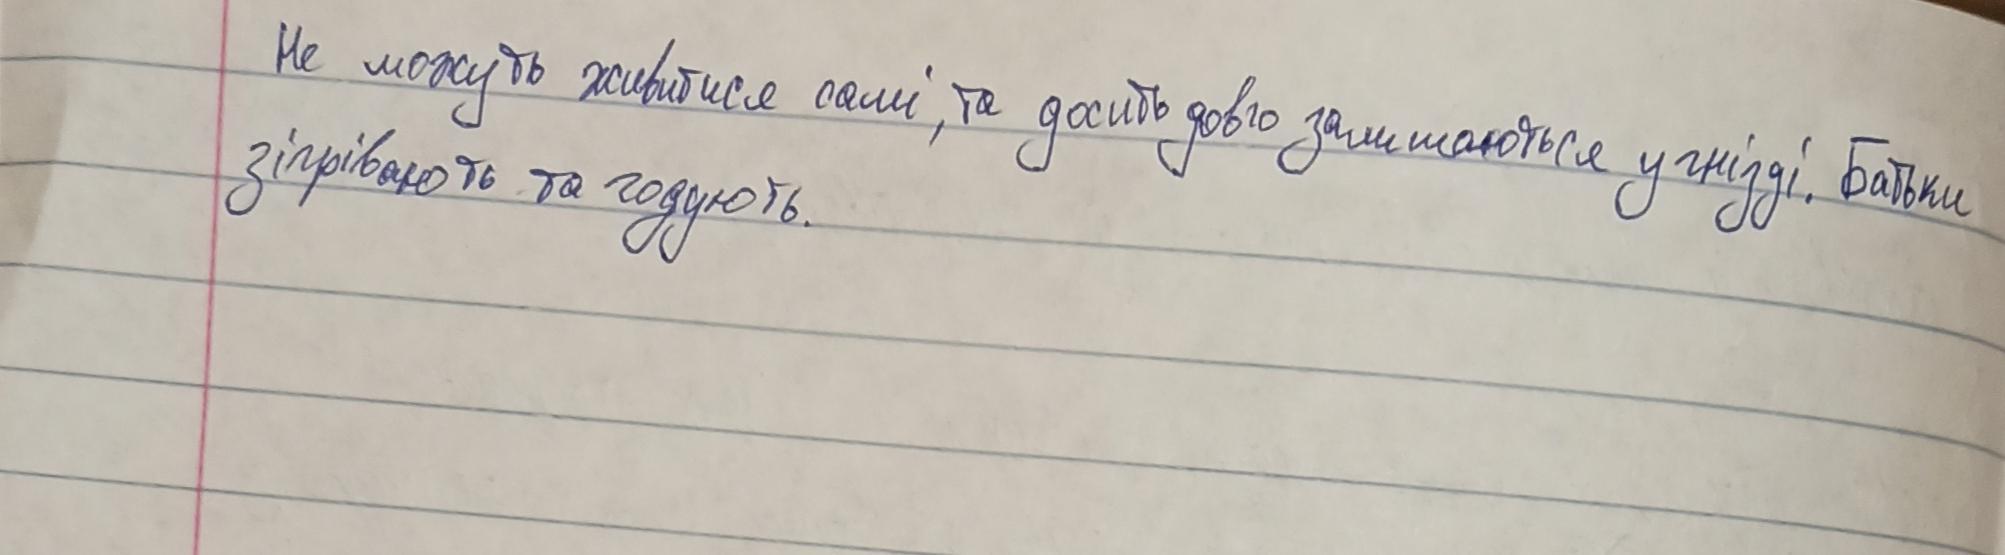 Не можуть живитися самі, та досить довго залишаються у гнізді. Батьки
зігрівають та годують.